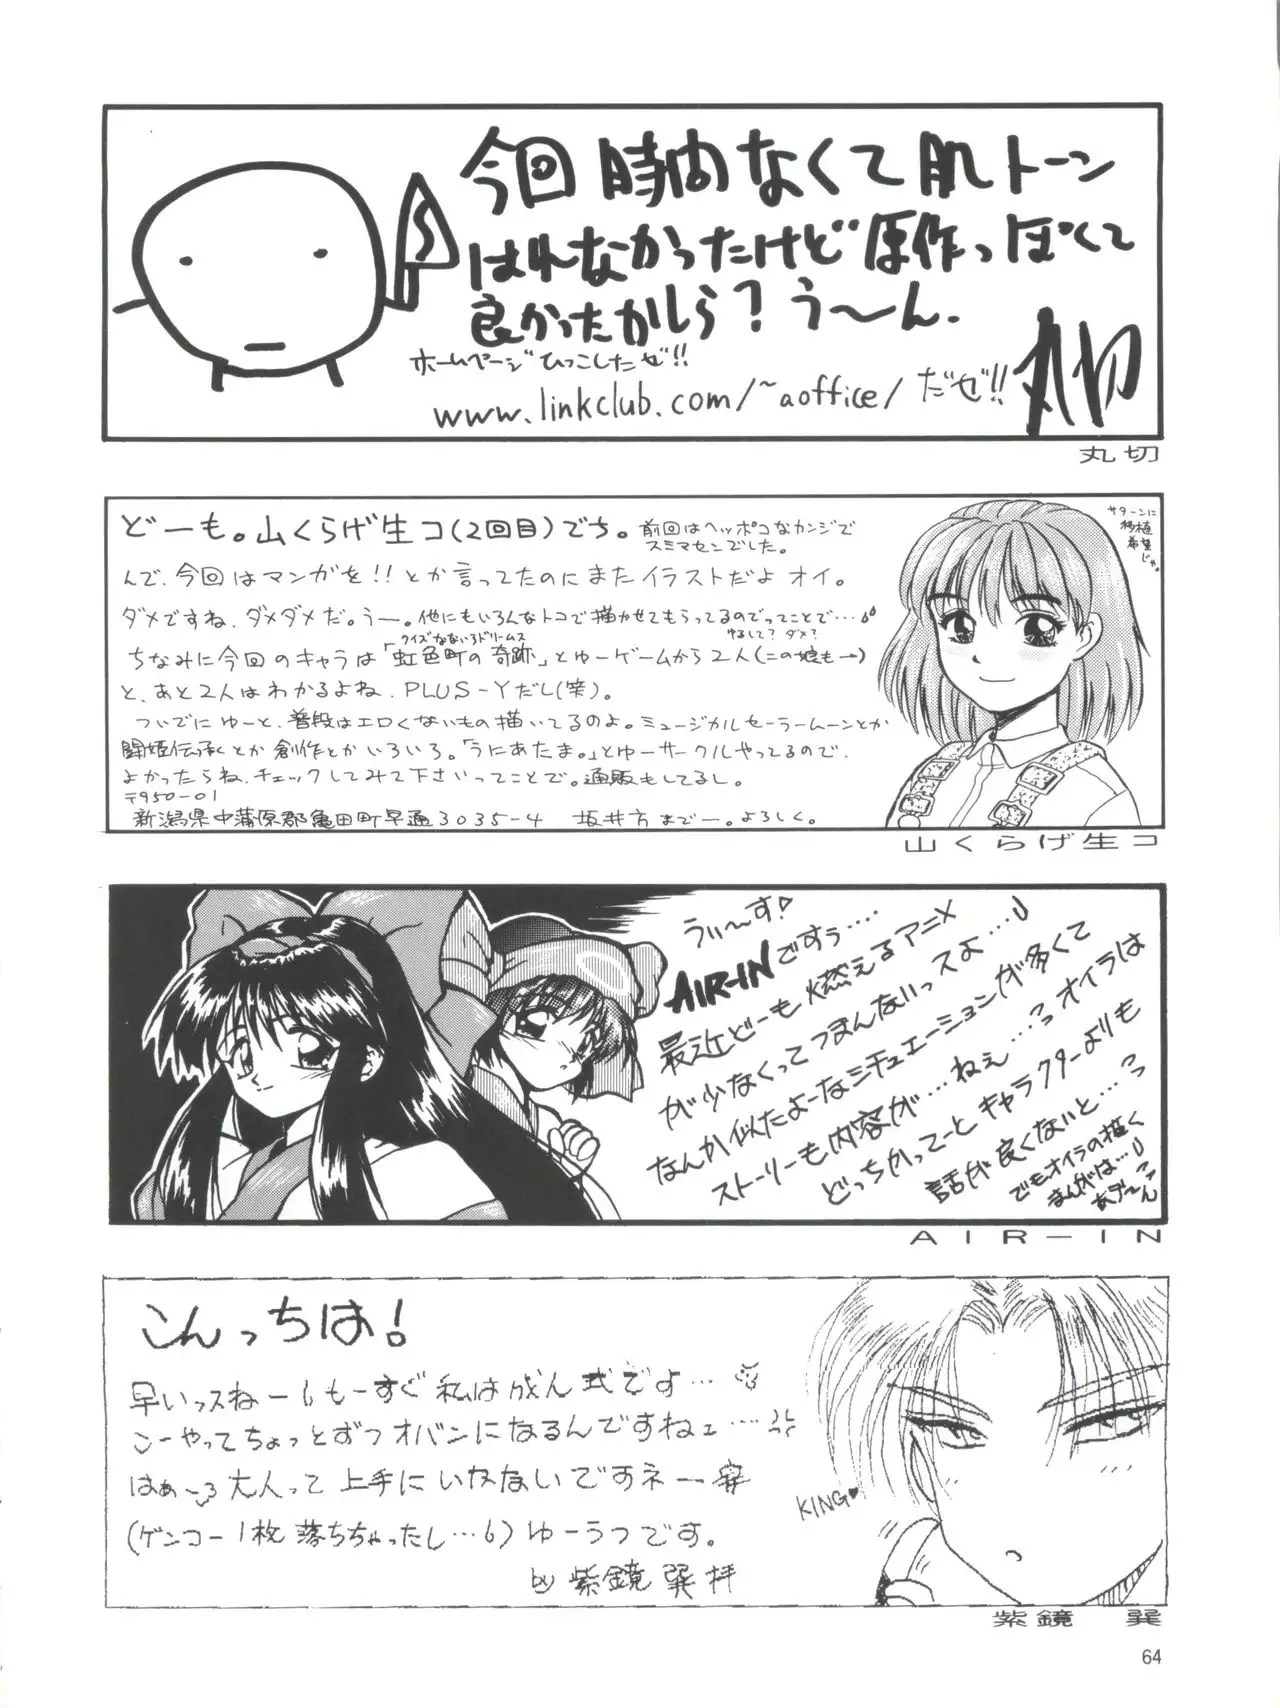 今回時間なくて肌トーン
はれなかったけど原作っぽくて
良かったかしら？う〜ん.
ホームページひっこしたぜ!!
www.linkclub.com/~aoffice/ だぜ!!
丸切
丸切
どーも。山くらげ生コ(2回目)でち。前回はヘッポコなカンジで
スミマセンでした。
んで、今回はマンガを!!とか言ってたのにまたイラストだよオイ。
ダメですね、ダメダメだ。うー。他にもいろんなトコで描かせてもらってるのでってことで…
クイズなないろドリームス
ゆるして？ダメ？
ちなみに今回のキャラは「虹色町の奇跡」とゆーゲームから2人(この娘も→)
と、あと2人はわかるよね、PLUS-Yだし(笑)。
ついでにゆーと、普段はエロくないもの描いてるのよ。ミュージカルセーラームーンとか
闘姫伝承とか創作とかいろいろ。「うにあたま。」とゆーサークルやってるので、
よかったらね、チェックしてみて下さいってことで。通販もしてるし。
〒950-01
新潟県中蒲原郡亀田町早通3035-4 坂井方までー。よろしく。
サターンに
移植
希望
じゃ。
山くらげ生コ
うぃ〜す!
AIR-INですぅ…
最近どーも燃えるアニメ
が少なくってつまんないっスよ…
なんか似たよーなシチュエーションが多くて
ストーリーも内容が…ねぇ…っオイラは
どっちかってーとキャラクターよりも
話が良くないと…っ
でもオイラの描く
まんがは…
あぅ〜っん
AIR-IN
こんっちは!
早いっスねー もーすぐ私は成人式です…
こーやってちょっとずつオバンになるんですねェ…
はぁ〜 大人って上手にいかないですネー
(ゲンコー1枚落ちちゃったし…)ゆーうつです。
by 紫鏡 巽 拝
KING♥
紫鏡 巽
64